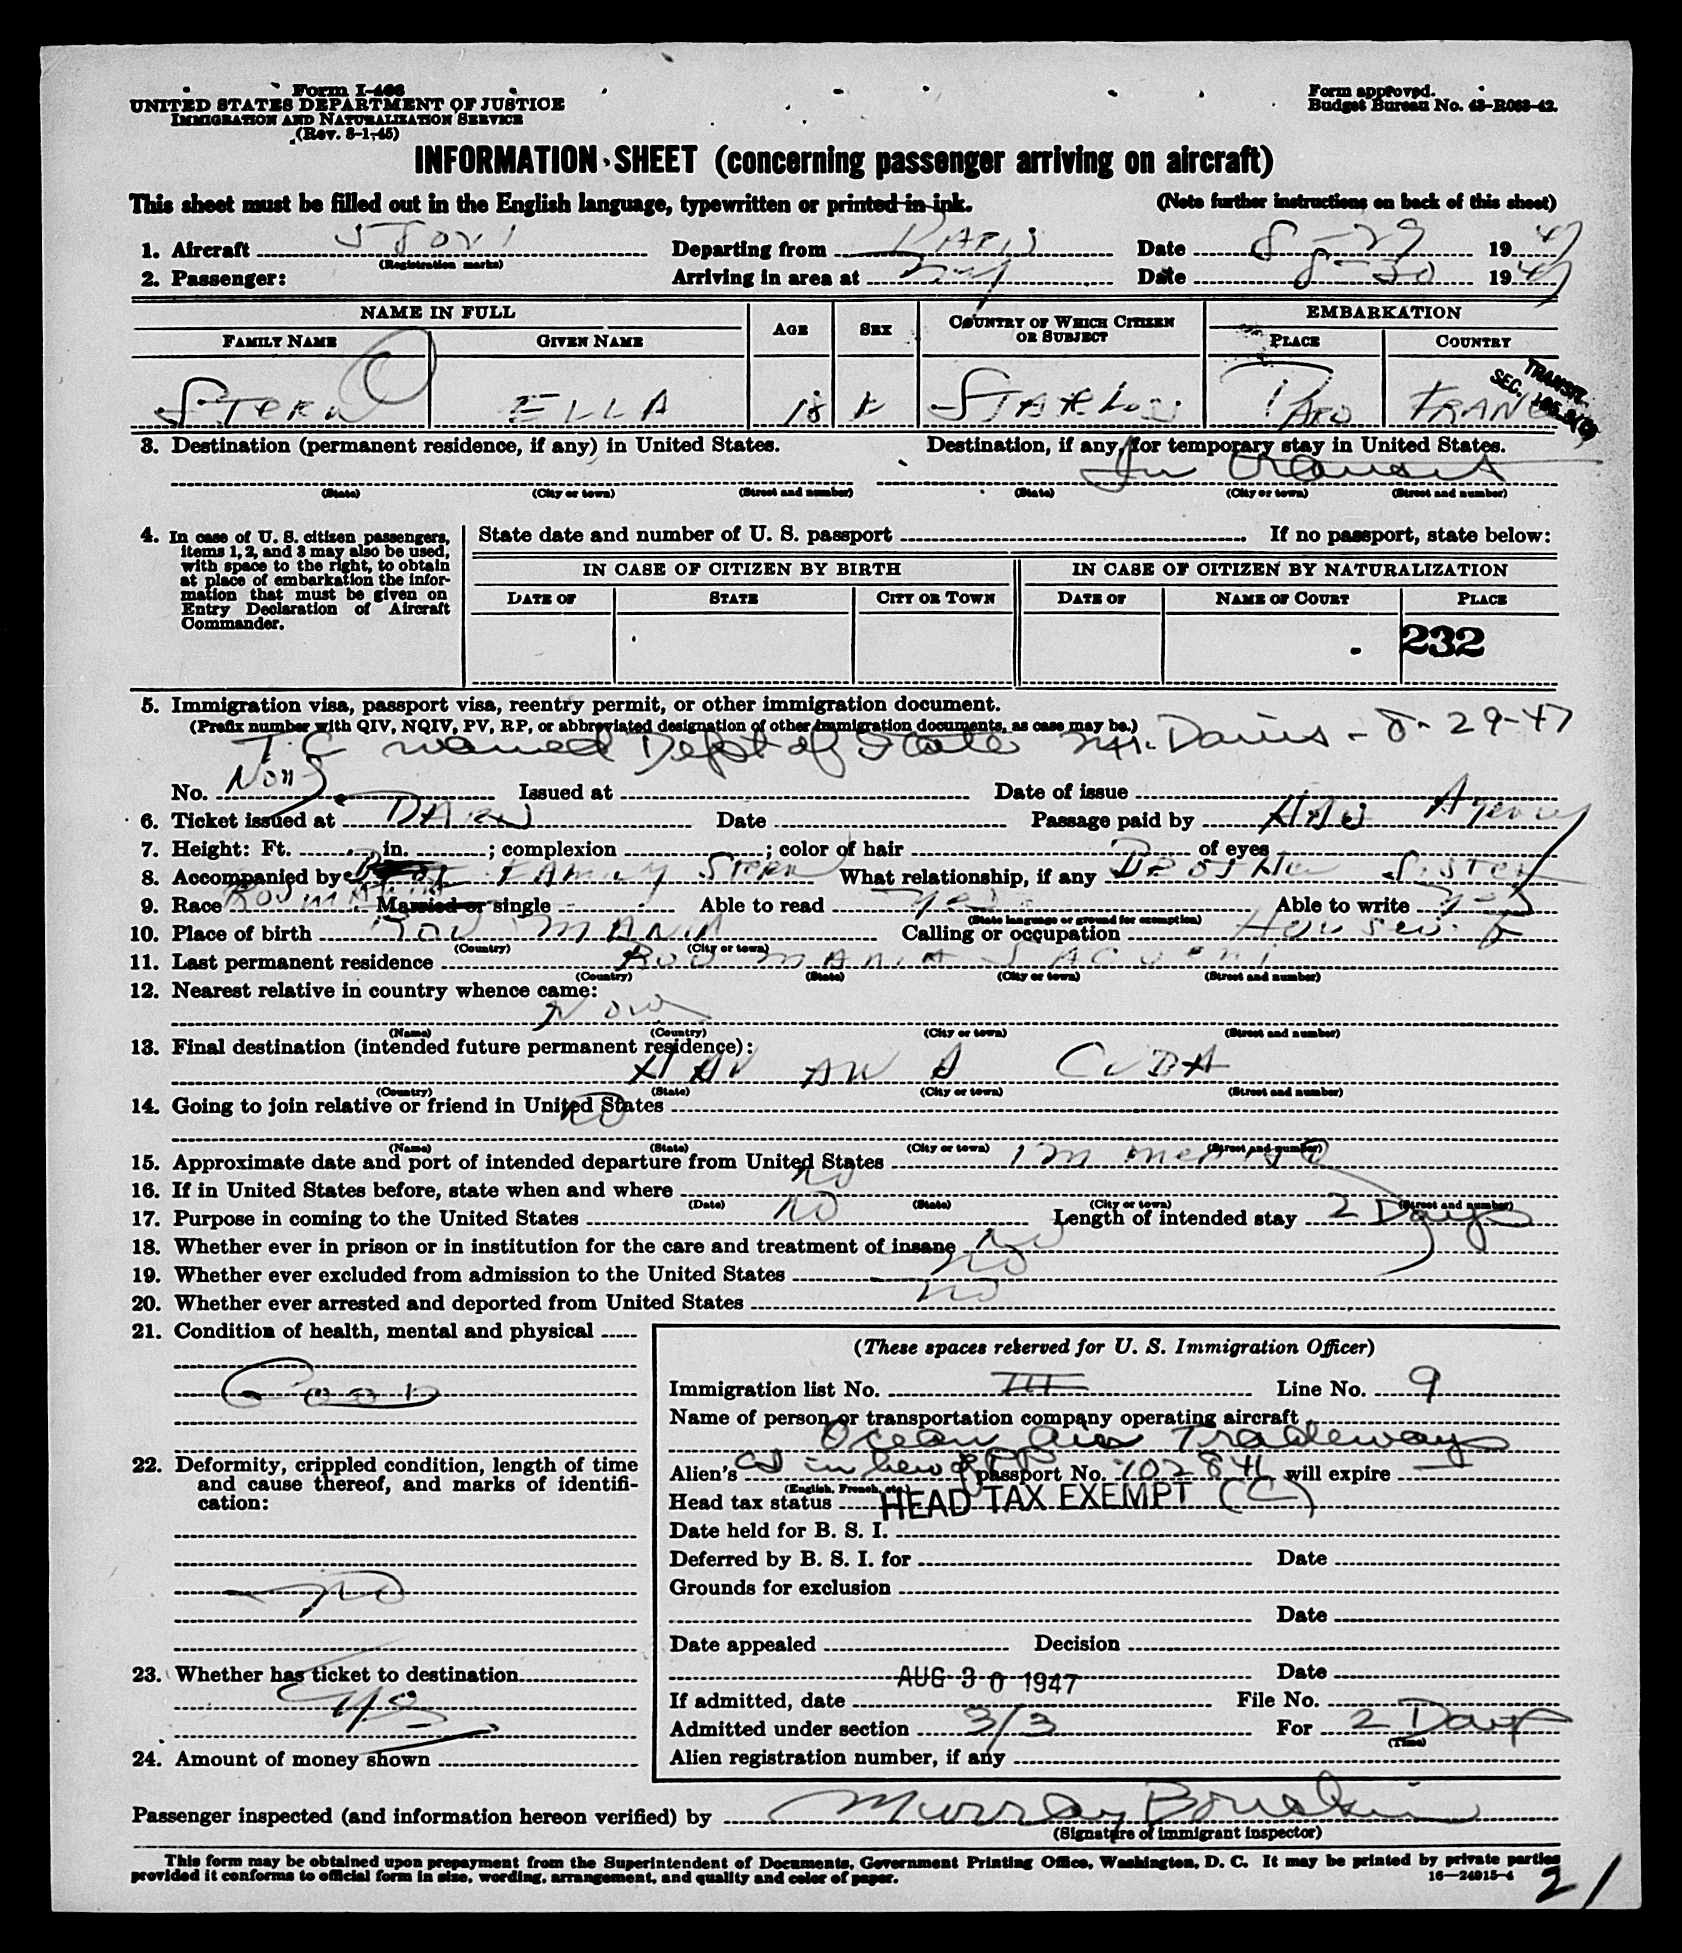 Form I-466
UNITED STATES DEPARTMENT OF JUSTICE
IMMIGRATION AND NATURALIZATION SERVICE
(Rev. 8-1-45)
Form approved.
Budget Bureau No. 43-R063-42.
INFORMATION SHEET (concerning passenger arriving on aircraft)
This sheet must be filled out in the English language, typewritten or printed in ink.
(Note further instructions on back of this sheet)
1. Aircraft Departing from PARIS Date 8-29 1947
(Registration marks)
2. Passenger: Arriving in area at Date 8-30 1947
NAME IN FULL AGE SEX COUNTRY OF WHICH CITIZEN OR SUBJECT EMBARKATION
FAMILY NAME GIVEN NAME PLACE COUNTRY
STERN ELLA 18 FRANCE
TRANSIT
SEC.
3. Destination (permanent residence, if any) in United States. Destination, if any, for temporary stay in United States.
In transit
(State) (City or town) (Street and number) (State) (City or town) (Street and number)
4. In case of U. S. citizen passengers, items 1, 2, and 3 may also be used, with space to the right, to obtain at place of embarkation the information that must be given on Entry Declaration of Aircraft Commander.
State date and number of U. S. passport If no passport, state below:
IN CASE OF CITIZEN BY BIRTH IN CASE OF CITIZEN BY NATURALIZATION
DATE OF STATE CITY OR TOWN DATE OF NAME OF COURT PLACE
232
5. Immigration visa, passport visa, reentry permit, or other immigration document.
(Prefix number with QIV, NQIV, PV, RP, or abbreviated designation of other immigration documents, as case may be.)
T.C waived Dept of State Mr. Davis - 8-29-47
No. None Issued at Date of issue
6. Ticket issued at PARIS Date Passage paid by Agency
7. Height: Ft. in. ; complexion ; color of hair of eyes
8. Accompanied by FAMILY STERN What relationship, if any BROTHER SISTER
9. Race Married or single Able to read Yes Able to write Yes
(State language or ground for exemption)
10. Place of birth ROUMANIA Calling or occupation
(Country) (City or town)
11. Last permanent residence ROUMANIA
(Country) (State) (City or town) (Street and number)
12. Nearest relative in country whence came:
None
(Name) (Country) (City or town) (Street and number)
13. Final destination (intended future permanent residence):
HAVANA CUBA
(Country) (State) (City or town) (Street and number)
14. Going to join relative or friend in United States
NO
(Name) (State) (City or town) (Street and number)
15. Approximate date and port of intended departure from United States
16. If in United States before, state when and where NO
(Date) (State) (City or town) (Street and number)
17. Purpose in coming to the United States NO Length of intended stay 2 Days
18. Whether ever in prison or in institution for the care and treatment of insane No
19. Whether ever excluded from admission to the United States NO
20. Whether ever arrested and deported from United States NO
21. Condition of health, mental and physical
GOOD
22. Deformity, crippled condition, length of time and cause thereof, and marks of identification:
NO
23. Whether has ticket to destination
Yes
24. Amount of money shown
(These spaces reserved for U. S. Immigration Officer)
Immigration list No. III Line No. 9
Name of person or transportation company operating aircraft
Ocean Air Tradeways
Alien's in lieu of passport No. will expire —
(English, French, etc.)
Head tax status HEAD TAX EXEMPT (C)
Date held for B. S. I.
Deferred by B. S. I. for Date
Grounds for exclusion
Date
Date appealed Decision
Date
AUG 30 1947
If admitted, date File No.
Admitted under section 3/3 For 2 Days
(Time)
Alien registration number, if any
Passenger inspected (and information hereon verified) by Murray
(Signature of immigrant inspector)
This form may be obtained upon prepayment from the Superintendent of Documents, Government Printing Office, Washington, D. C. It may be printed by private parties
provided it conforms to official form in size, wording, arrangement, and quality and color of paper.
16—24915-4
21